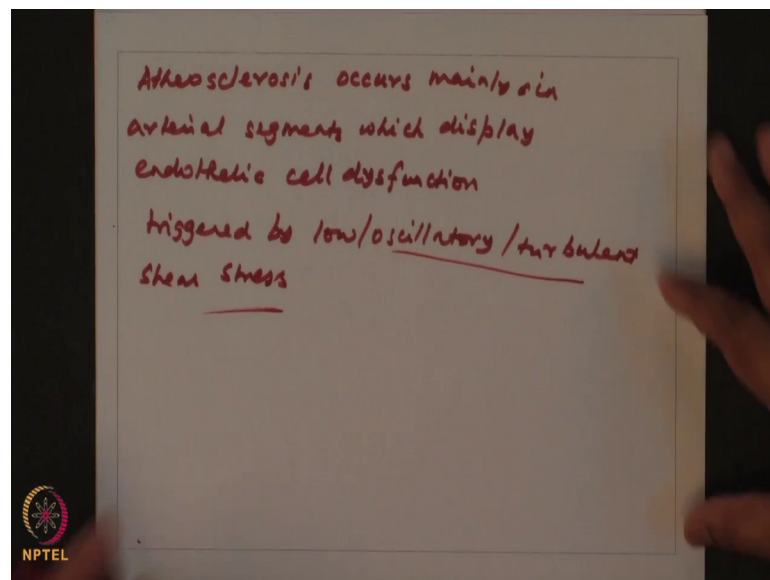 Atheosclerosis occurs mainly in
arterial segments which display
endothelic cell dysfunction
triggered by low/oscillatory/turbulent
shear stress
NPTEL